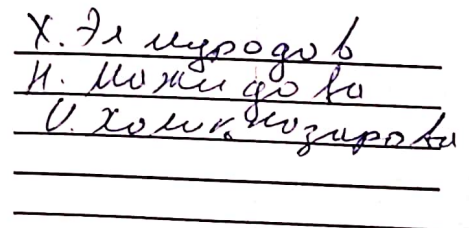 Х. Элмуродов
Н. Можидова
И. Холикназарова